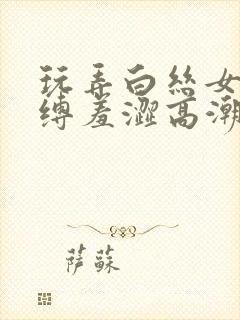 玩弄白絲女
縛羞澀高潮
萨蘇